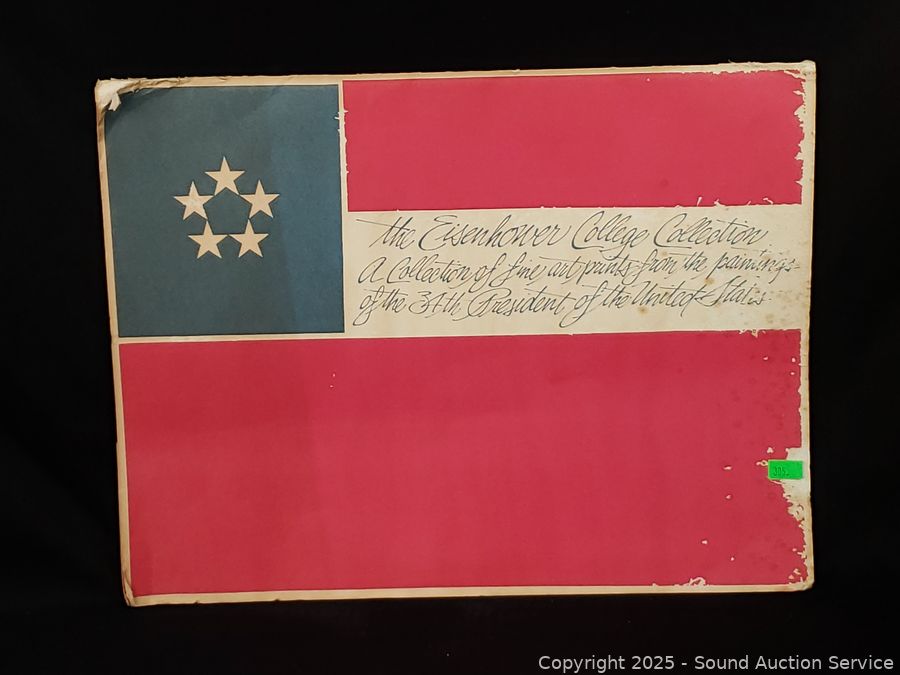 the Eisenhower College Collection
A Collection of fine art prints from the paintings
of the 34th President of the United States
Copyright 2025 - Sound Auction Service